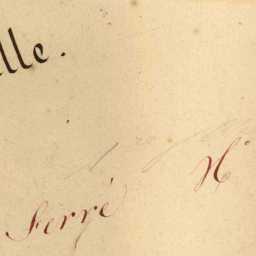 lle.
Ferré N°